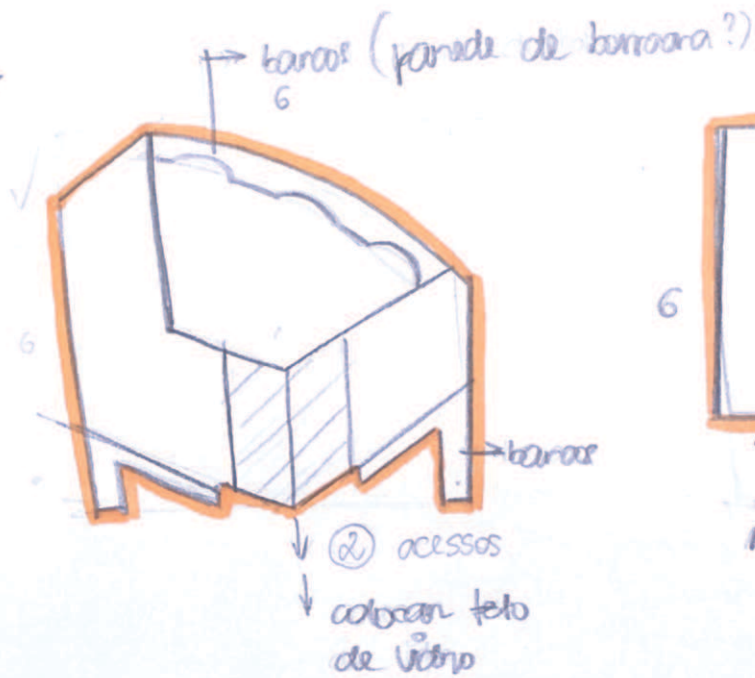 bancos (parede de borracha?)
6
6
6
bancos
② acessos
colocar teto
de vidro